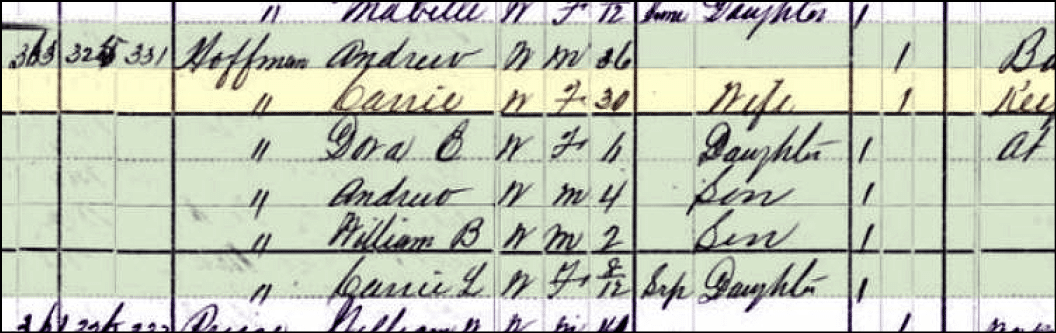 " Mabelle W F 12 June Daughter 1
363 325 331 Hoffman Andrew W M 36 1
" Carrie W F 30 Wife 1
" Dora B W F 11 Daughter 1 At
" Andrew W M 4 Son 1
" William B W M 2 Son 1
" Carrie L W F 8/12 Sep Daughter 1
William 1